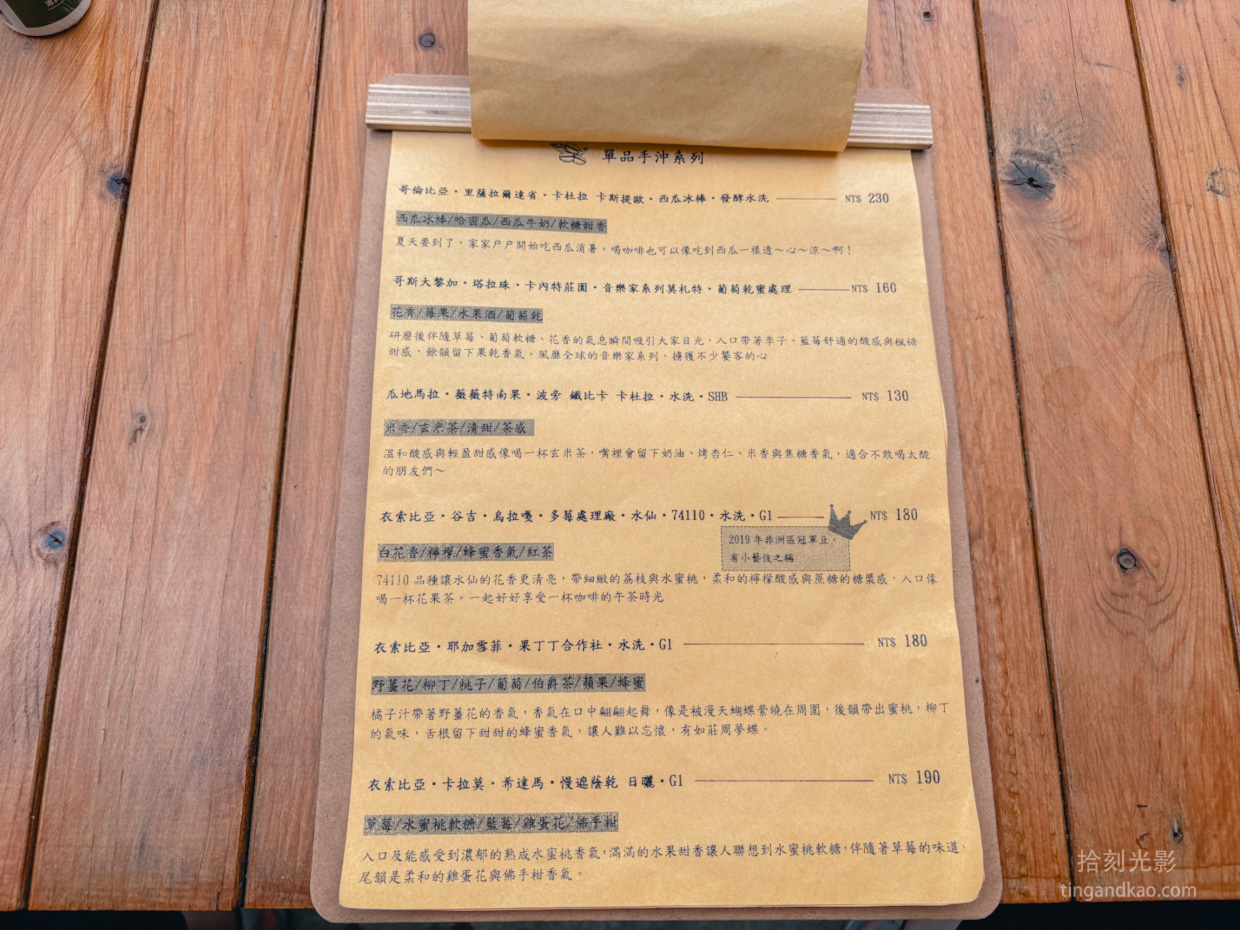 單品手沖系列
哥倫比亞·里薩拉爾達省·卡杜拉 卡斯提歐·西瓜冰棒·發酵水洗 NT$ 230
西瓜冰棒/哈密瓜/西瓜牛奶/軟糖甜香
夏天要到了，家家戶戶開始吃西瓜消暑。喝咖啡也可以像吃到西瓜一樣透～心～涼～啊！
哥斯大黎加·塔拉珠·卡內特莊園·音樂家系列莫札特·葡萄乾蜜處理 NT$ 160
花香/莓果/水果酒/葡萄乾
研磨後伴隨草莓、葡萄軟糖、花香的氣息瞬間吸引大家目光，入口帶著李子、藍莓舒適的酸感與楓糖
甜感，餘韻留下果乾香氣。風靡全球的音樂家系列，擄獲不少饕客的心
瓜地馬拉·薇薇特南果·波旁 鐵比卡 卡杜拉·水洗·SHB NT$ 130
米香/玄米茶/清甜/茶感
溫和酸感與輕盈甜感像喝一杯玄米茶，嘴裡會留下奶油、烤杏仁、米香與焦糖香氣，適合不敢喝太酸
的朋友們～
衣索比亞·谷吉·烏拉嘎·多莓處理廠·水仙·74110·水洗·G1 NT$ 180
2019 年非洲區冠軍豆，
有小藝伎之稱
白花香/檸檬/蜂蜜香氣/紅茶
74110 品種讓水仙的花香更清亮，帶細緻的荔枝與水蜜桃，柔和的檸檬酸感與蔗糖的糖漿感，入口像
喝一杯花果茶。一起好好享受一杯咖啡的午茶時光
衣索比亞·耶加雪菲·果丁丁合作社·水洗·G1 NT$ 180
野薑花/柳丁/桃子/葡萄/伯爵茶/蘋果/蜂蜜
橘子汁帶著野薑花的香氣，香氣在口中翩翩起舞，像是被漫天蝴蝶縈繞在周圍，後韻帶出蜜桃，柳丁
的氣味，舌根留下甜甜的蜂蜜香氣，讓人難以忘懷，有如莊周夢蝶。
衣索比亞·卡拉莫·希達馬·慢遮蔭乾 日曬·G1 NT$ 190
草莓/水蜜桃軟糖/藍莓/雞蛋花/佛手柑
入口及能感受到濃郁的熟成水蜜桃香氣，滿滿的水果甜香讓人聯想到水蜜桃軟糖，伴隨著草莓的味道，
尾韻是柔和的雞蛋花與佛手柑香氣。
拾刻光影
tingandkao.com